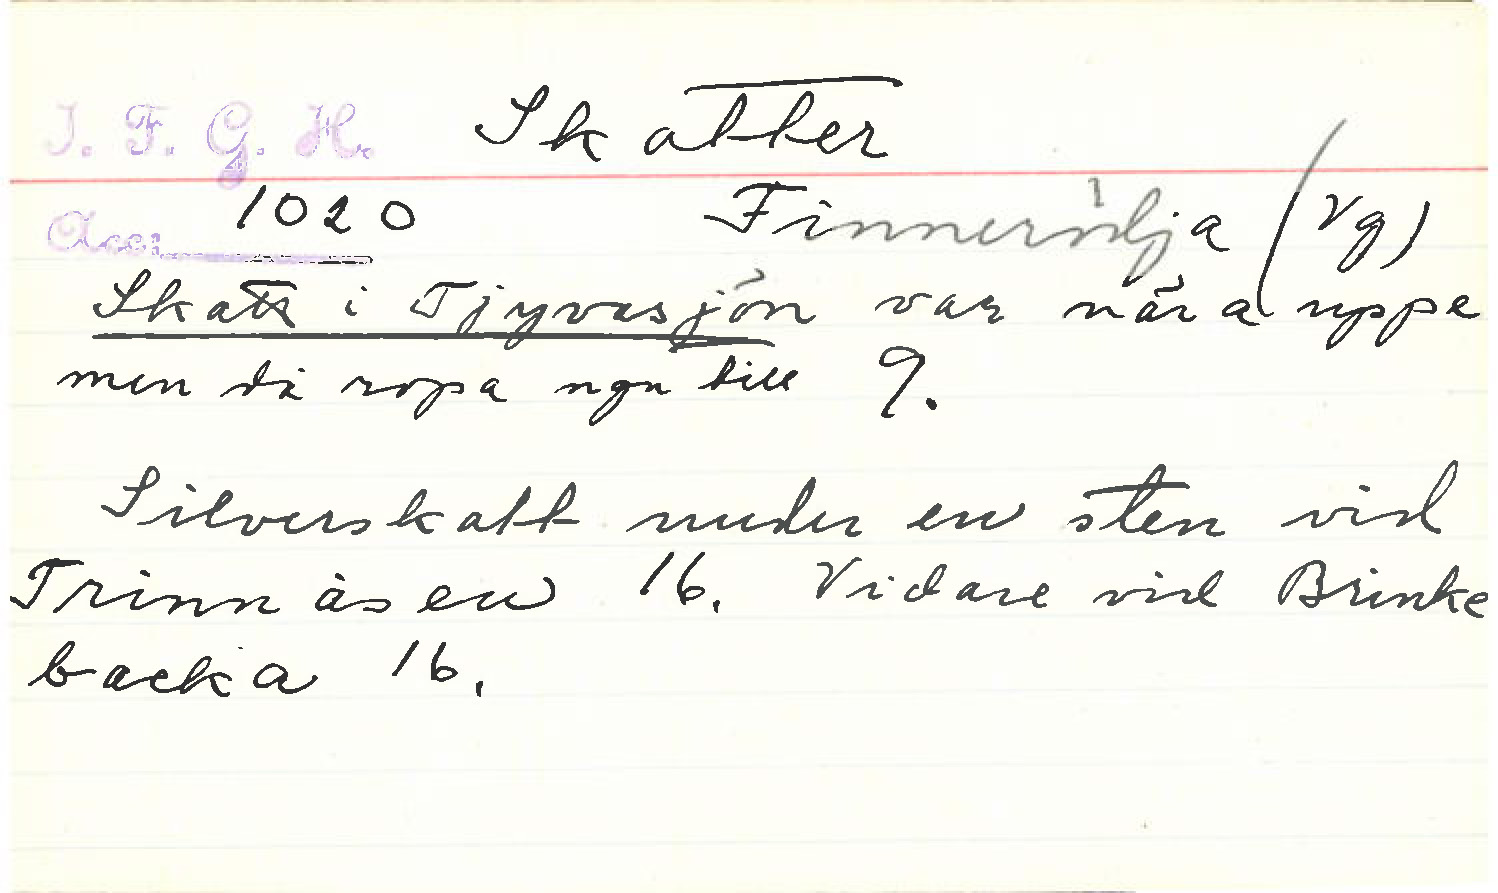 I. F. G. H. Skatter
Acc. 1020 Finnerödja (Vg)
Skatt i Tjyvasjön var nära uppe
men då ropa ngn till 9.
Silverskatt under en sten vid
Trinnåsen 16. Vidare vid Brinke
backa 16.